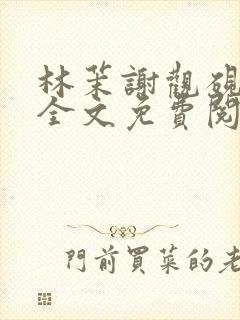 林茉謝觀硯
全文免費閱
門前買菜的老